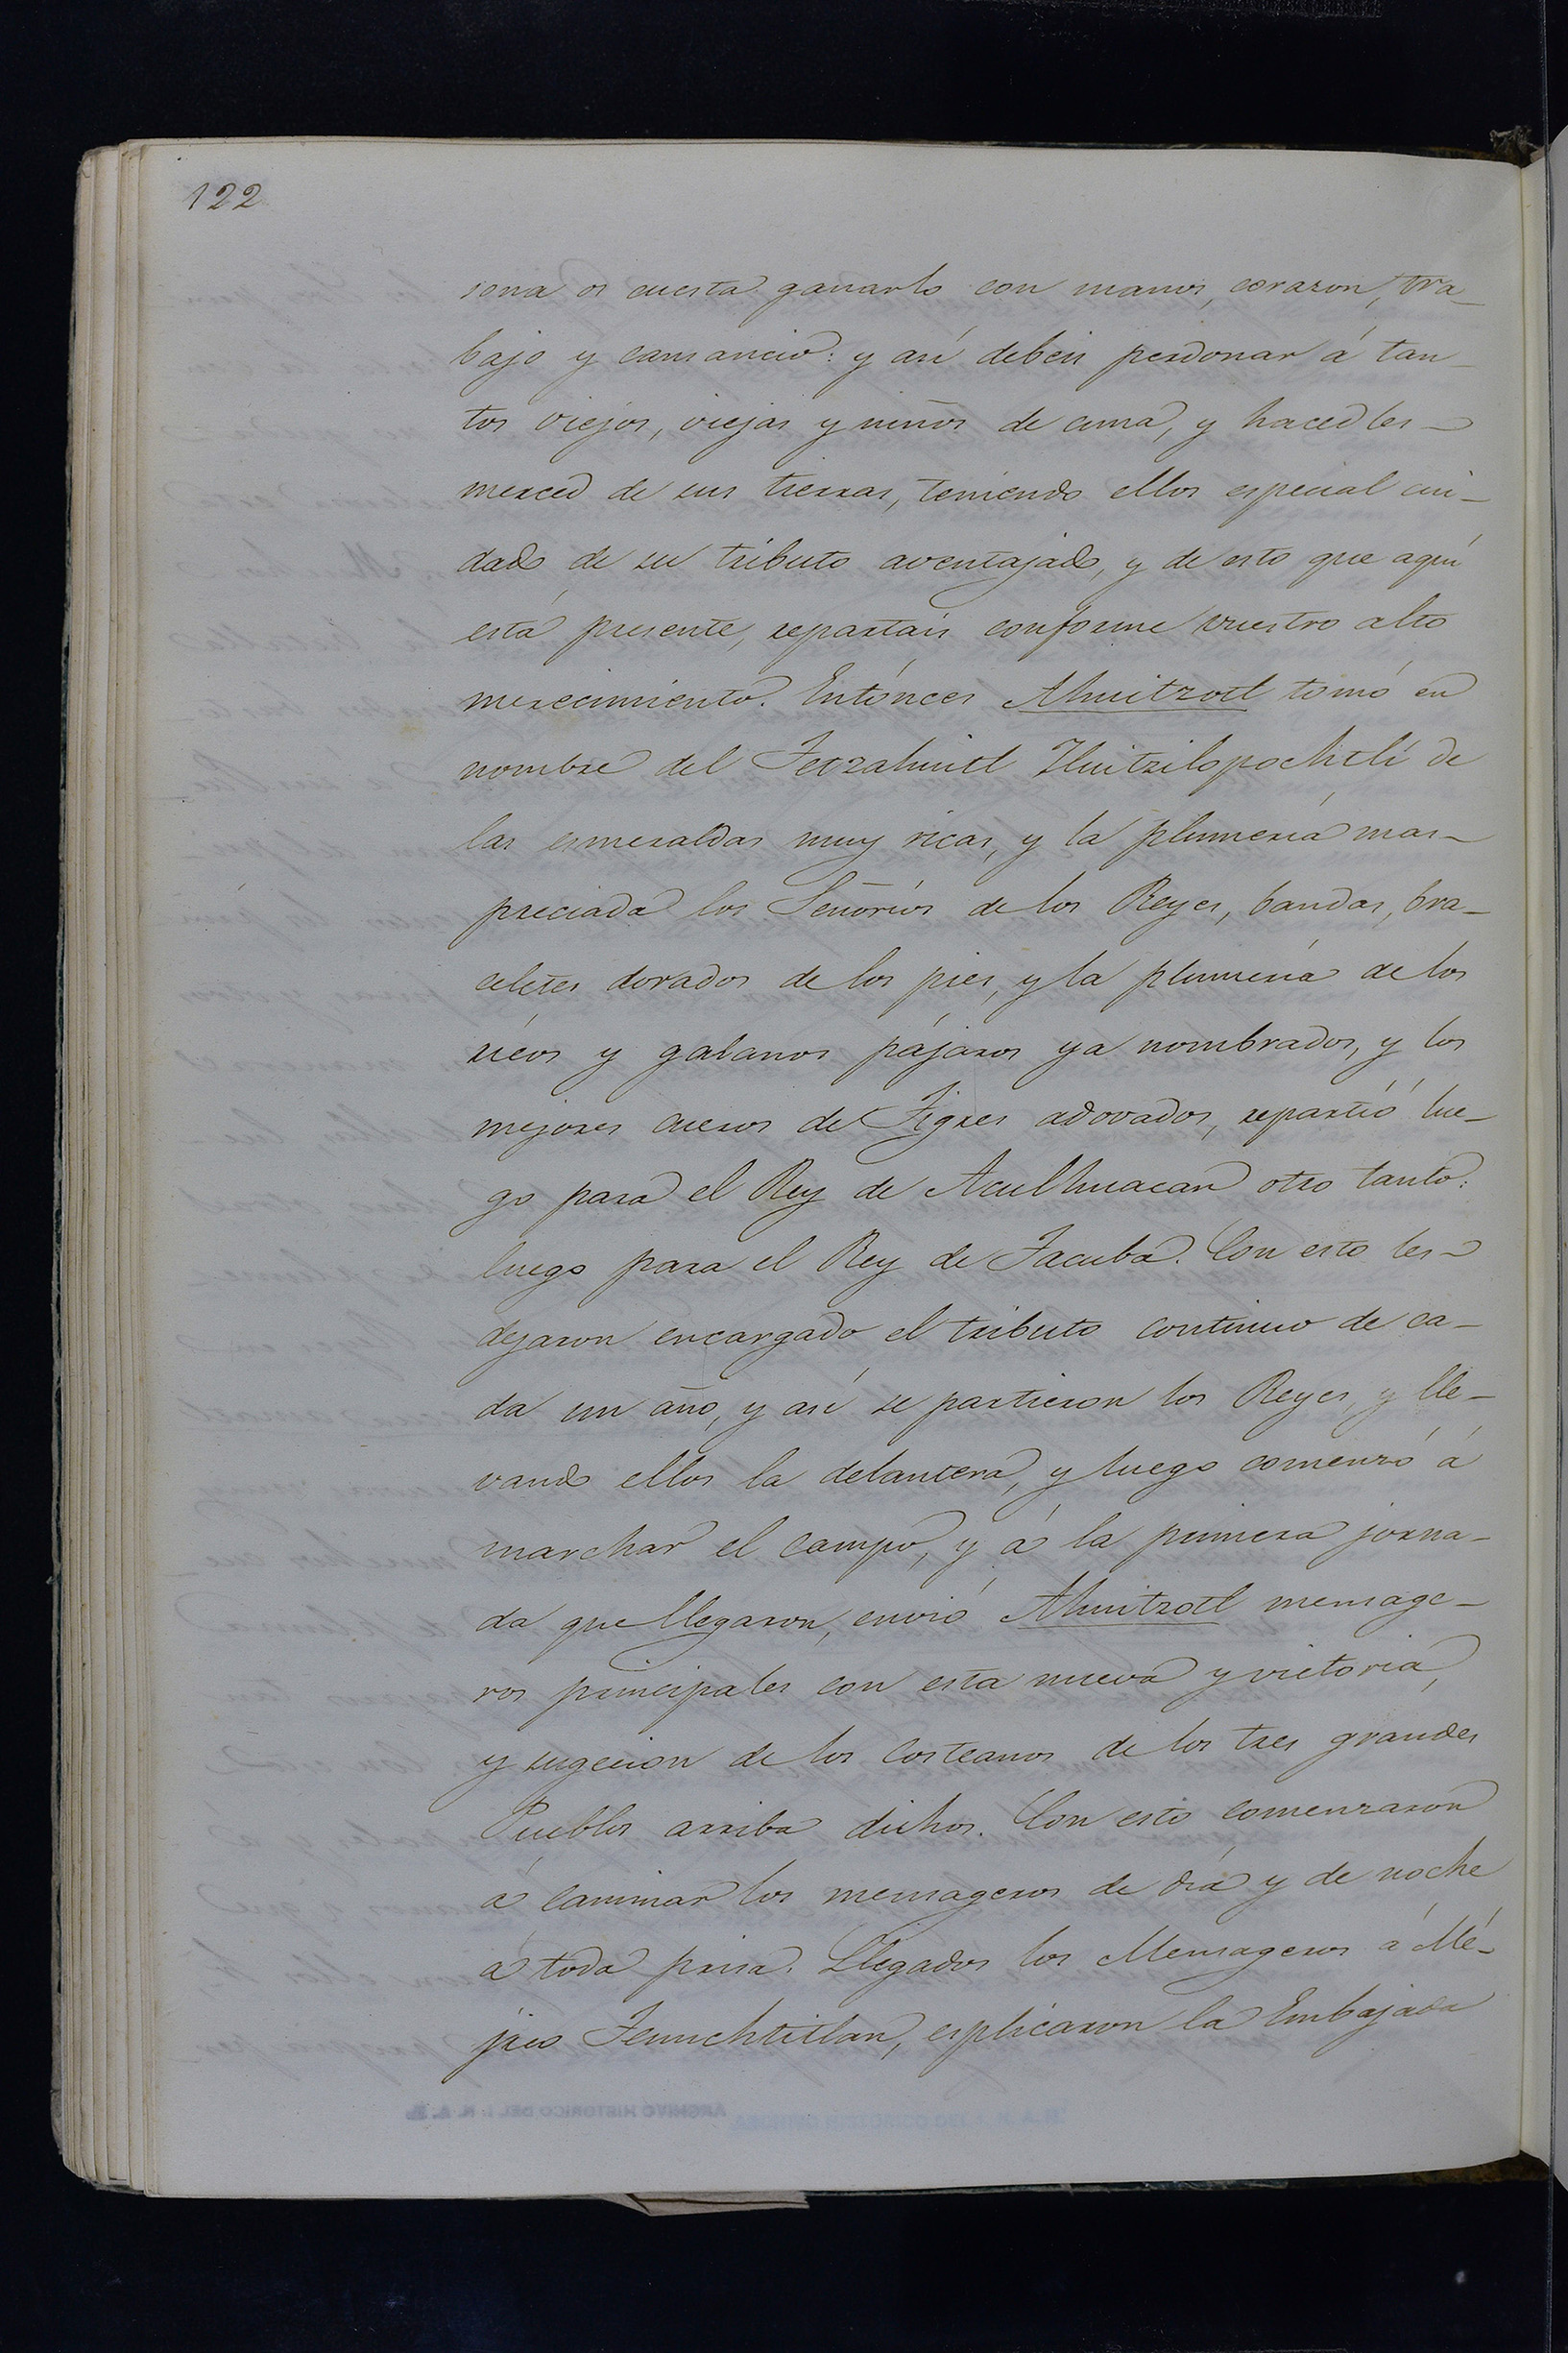 122
sona os cuesta ganarlo con manos, corazon, tra-
bajo y cansancio: y asi debeis perdonar á tan-
tos viejos, viejas y niños de cuna, y hacedles
merced de sus tierras, teniendo ellos especial cui-
dado de su tributo aventajado, y de esto que aquí
está presente, repartais conforme vuestro alto
merecimiento. Entónces Ahuitzotl tomó en
nombre del Tetzahuitl Huitzilopochtli de
las esmeraldas muy ricas, y la plumería mas
preciada los Señoríos de los Reyes, bandas, bra-
celetes dorados de los pies, y la plumería de los
ricos y galanos pájaros ya nombrados, y los
mejores cueros de Tigres adovados, repartió lue-
go para el Rey de Aculhuacan otro tanto:
luego para el Rey de Tacuba. Con esto les
dejaron encargado el tributo continuo de ca-
da un año, y así se partieron los Reyes, y lle-
vando ellos la delantera, y luego comenzó á
marchar el campo, y á la primera jorna-
da que llegaron, envió Ahuitzotl mensage-
ros principales con esta nueva y victoria,
y sugecion de los Costeanos de los tres grandes
Pueblos arriba dichos. Con esto comenzaron
á caminar los mensageros de dia y de noche
á toda prisa. Llegados los Mensageros á Mé-
jico Tenuchtitlan, esplicaron la Embajada